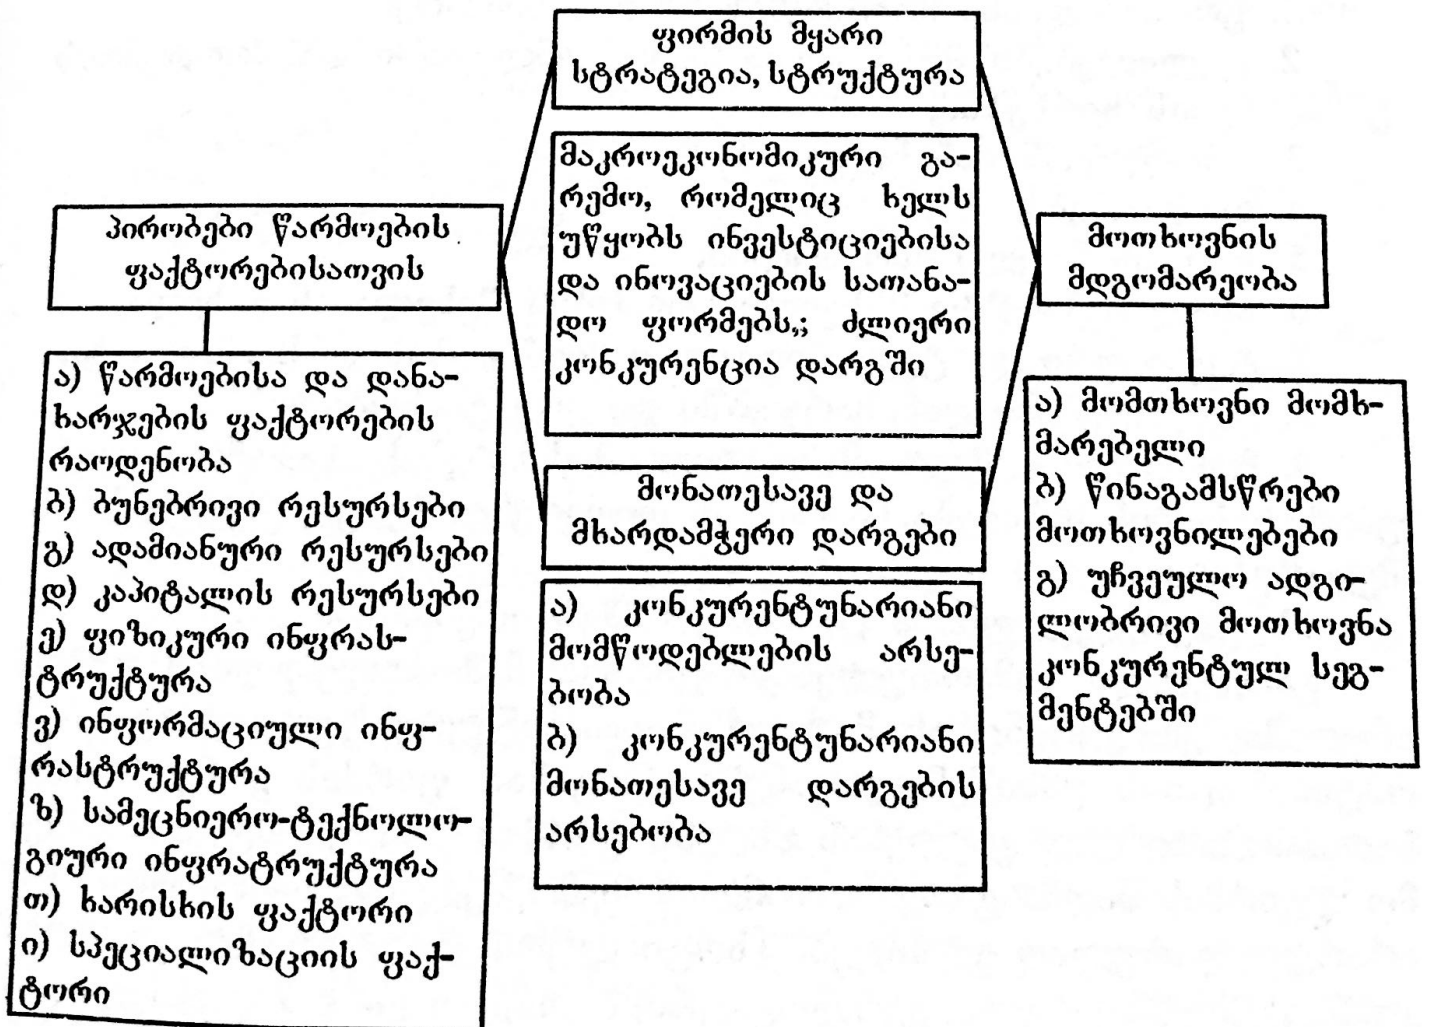 ფირმის მყარი
სტრატეგია, სტრუქტურა
მაკროეკონომიკური გა-
რემო, რომელიც ხელს
უწყობს ინვესტიციებისა
და ინოვაციების სათანა-
დო ფორმებს,; ძლიერი
კონკურენცია დარგში
პირობები წარმოების
ფაქტორებისათვის
ა) წარმოებისა და დანა-
ხარჯების ფაქტორების
რაოდენობა
ბ) ბუნებრივი რესურსები
გ) ადამიანური რესურსები
დ) კაპიტალის რესურსები
ე) ფიზიკური ინფრას-
ტრუქტურა
ვ) ინფორმაციული ინფ-
რასტრუქტურა
ზ) სამეცნიერო-ტექნოლო-
გიური ინფრატრუქტურა
თ) ხარისხის ფაქტორი
ი) სპეციალიზაციის ფაქ-
ტორი
მონათესავე და
მხარდამჭერი დარგები
ა) კონკურენტუნარიანი
მომწოდებლების არსე-
ბობა
ბ) კონკურენტუნარიანი
მონათესავე დარგების
არსებობა
მოთხოვნის
მდგომარეობა
ა) მომთხოვნი მომხ-
მარებელი
ბ) წინაგამსწრები
მოთხოვნილებები
გ) უჩვეულო ადგი-
ლობრივი მოთხოვნა
კონკურენტულ სეგ-
მენტებში